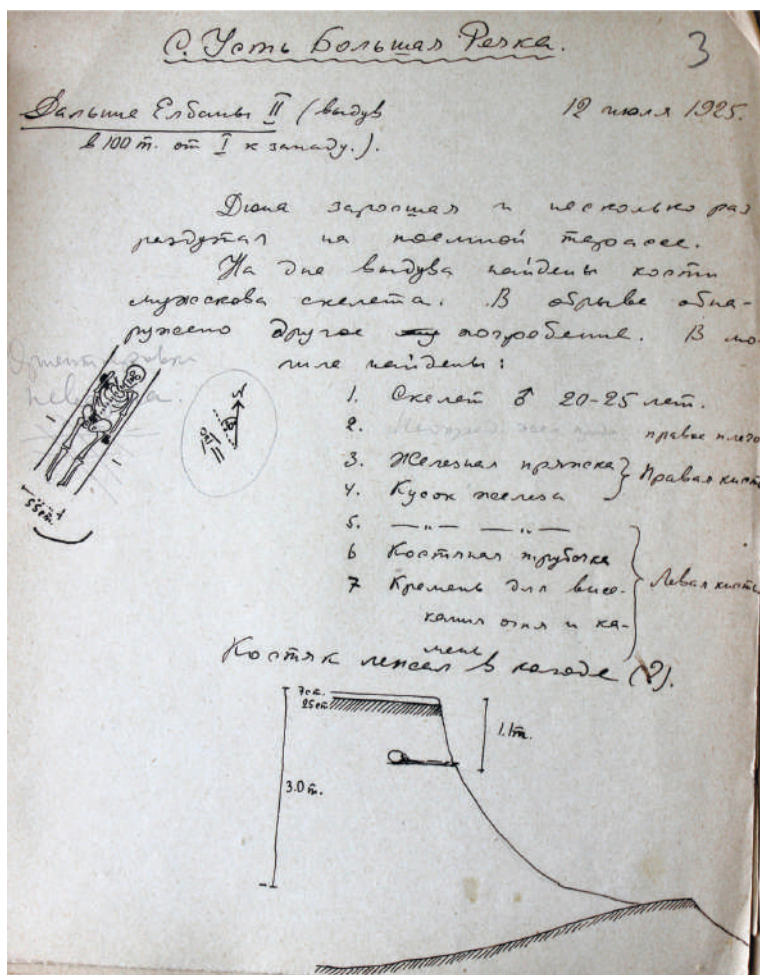 С. Усть Большая Речка.
3
Дальние Елбаны II (выдув
12 июля 1925.
в 100 m. от I к западу.).
Дюна заросшая и несколько раз
раздутая на поемной терассе.
На дне выдува найдены кости
мужскова скелета. В обрыве обна-
ружено другое погребение. В мо-
гиле найдены:
Ориентировка
1. Скелет ♂ 20-25 лет.
2. правое плечо
3. Железная пряжка } Правая кисть
4. Кусок железа
5. —„— —„—
6 Костяная трубочка
7 Кремень для высе- } Левая кисть
кания огня и ка-
мень
55 cm
N
Костяк лежал в колоде (?).
7 cm.
25 cm
1.1 m.
3.0 m.